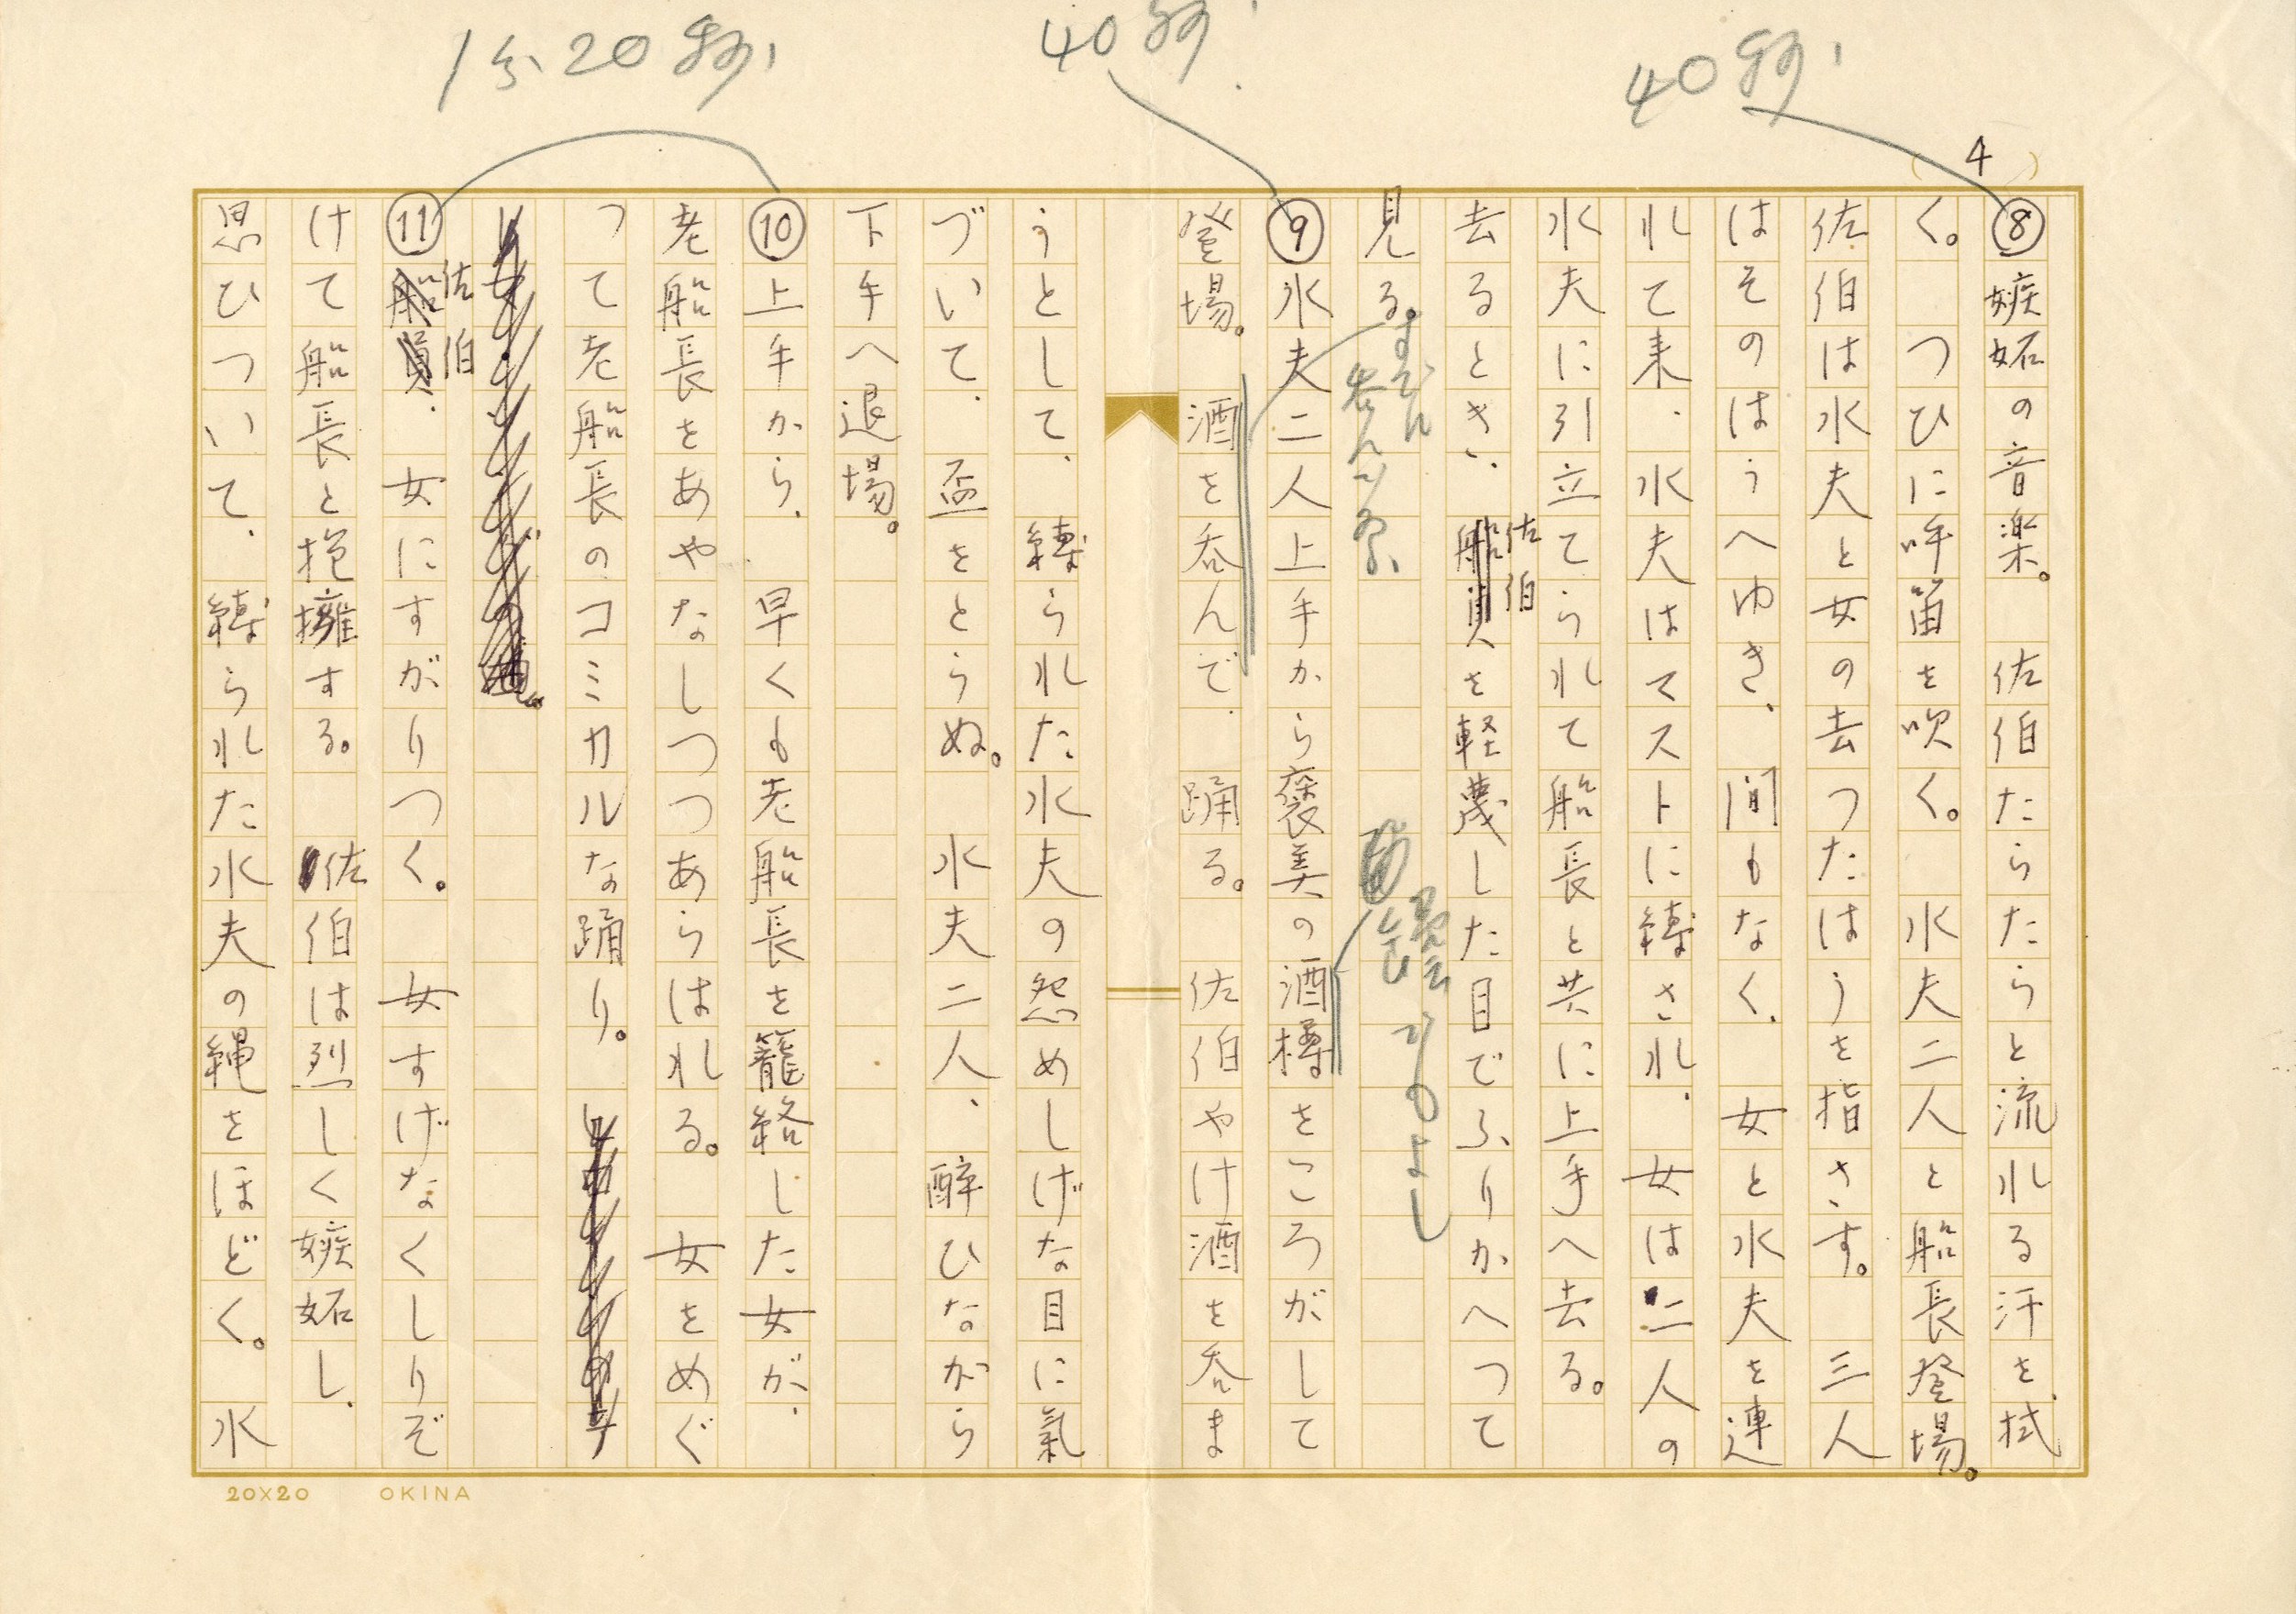 40秒
40秒
1分20秒
4
⑧嫉妬の音楽。 佐伯たらたらと流れる汗を、拭
く。 つひに呼笛を吹く。 水夫二人と船長登場。
佐伯は水夫と女の去つたはうを指さす。 三人
はそのはうへゆき、間もなく、女と水夫を連
れて来、水夫はマストに縛され、女は二人の
水夫に引立てられて船長と共に上手へ去る。
去るとき、佐伯を軽蔑した目でふりかへつて
見る。
⑨水夫二人上手から褒美の酒樽をころがして
登場。 酒を呑んで、踊る。 佐伯やけ酒を呑ま
うとして、縛られた水夫の怨めしげな目に氣
づいて、盃をとらぬ。 水夫二人、酔ひながら
下手へ退場。
⑩上手から、早くも老船長を籠絡した女が、
老船長をあやなしつつあらはれる。 女をめぐ
つて老船長のコミカルな踊り。
⑪佐伯、女にすがりつく。 女すげなくしりぞ
けて船長と抱擁する。 佐伯は烈しく嫉妬し、
思ひついて、縛られた水夫の縄をほどく。 水
20×20 OKINA